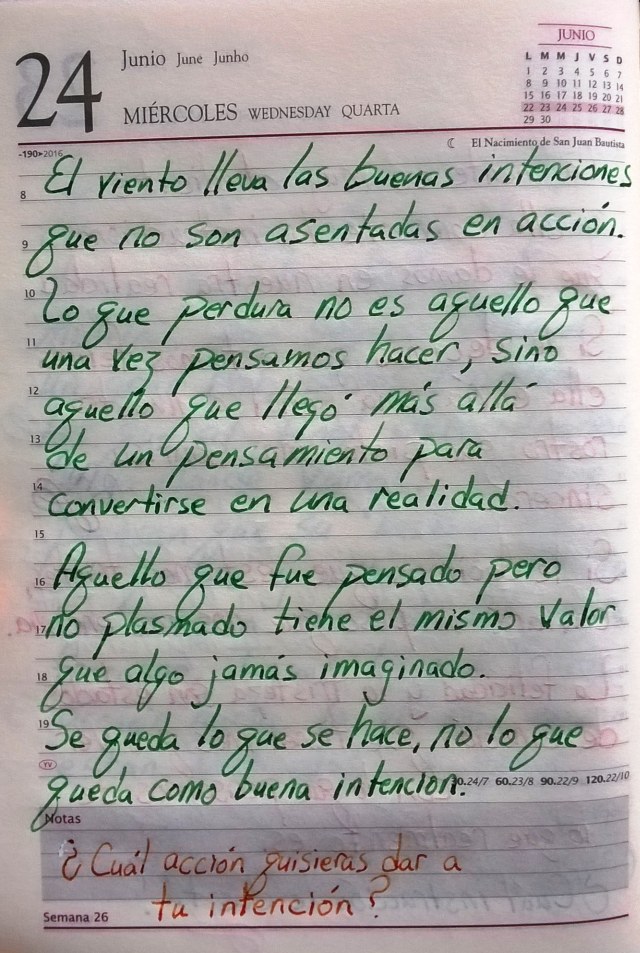 24 Junio June Junho
MIÉRCOLES WEDNESDAY QUARTA
JUNIO
L M M J V S D
1 2 3 4 5 6 7
8 9 10 11 12 13 14
15 16 17 18 19 20 21
22 23 24 25 26 27 28
29 30
-190▸2016
☾ El Nacimiento de San Juan Bautista
8 El viento lleva las buenas intenciones
9 que no son asentadas en acción.
10 Lo que perdura no es aquello que
11 una vez pensamos hacer, sino
12 aquello que llegó más allá
13 de un pensamiento para
14 convertirse en una realidad.
15
16 Aquello que fue pensado pero
17 no plasmado tiene el mismo valor
18 que algo jamás imaginado.
19 Se queda lo que se hace, no lo que
queda como buena intención.
.24/7 60.23/8 90.22/9 120.22/10
Notas
¿Cuál acción quisieras dar a
tu intención?
Semana 26